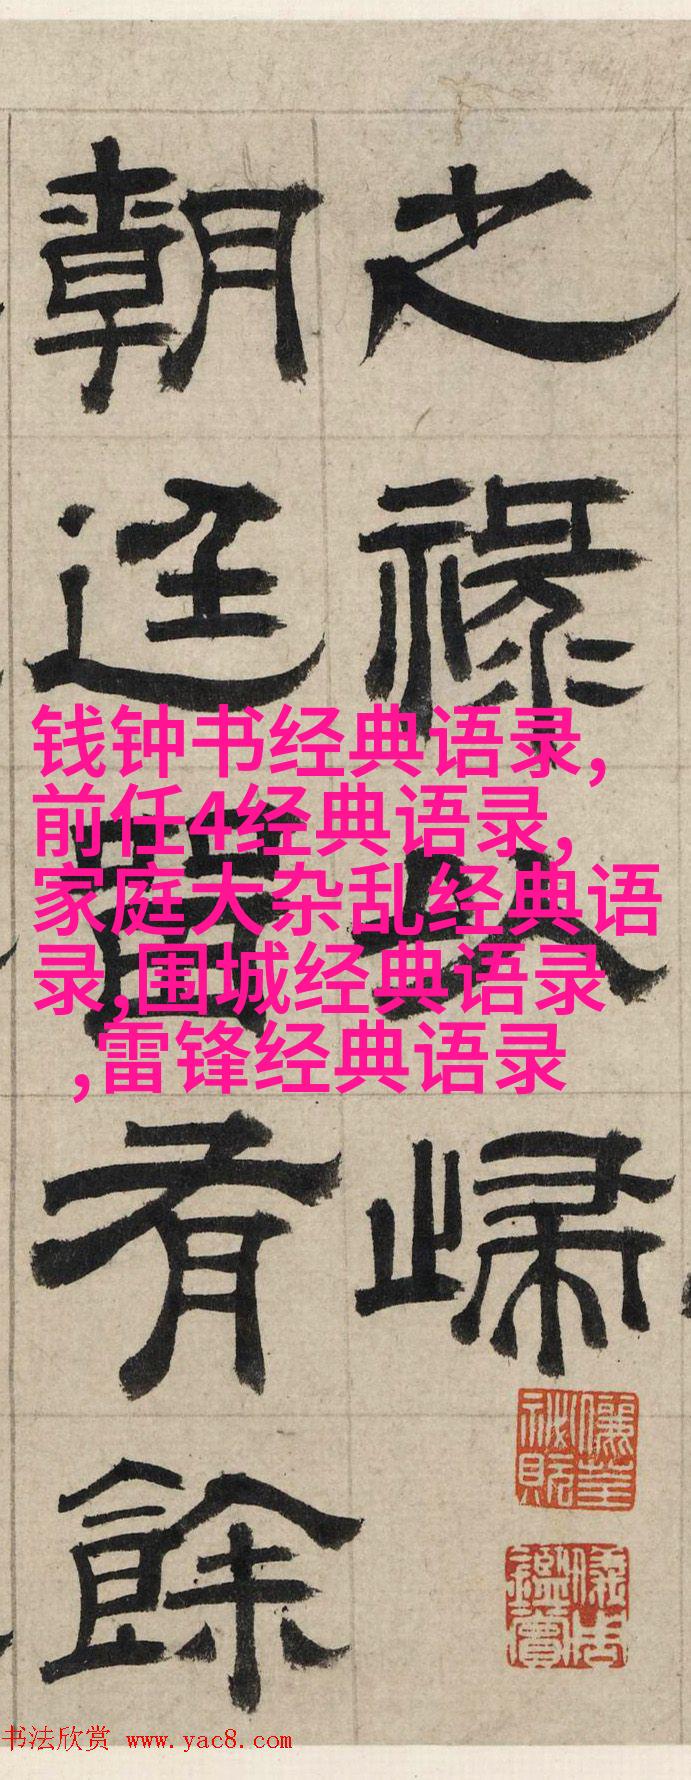 之祿以歸
朝廷留有餘
钱钟书经典语录,
前任4经典语录,
家庭大杂乱经典语
录,围城经典语录
,雷锋经典语录
书法欣赏 www.yac8.com